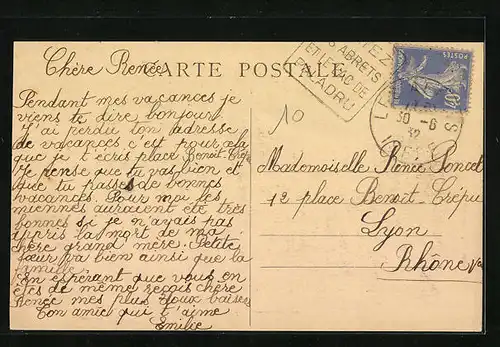 CARTE POSTALE
Chère Renée
Pendant mes vacances je
viens te dire bonjour
J'ai perdu ton adresse
de vacances c'est pour cela
que je t'écris place Benoit-Crépu
Je pense que tu vas bien et
que tu passes de bonnes
vacances. Pour moi les
miennes auraient été très
bonnes si je n'avais pas
appris la mort de ma
chère grand mère. Petite
sœur va bien ainsi que la
famille.
En espérant que vous en
êtes de même reçois chère
Renée mes plus doux baisers
Ton amie qui t'aime
Emilie
ABRETS
ET LE LAC DE
PALADRU
30 -8
32
10
Mademoiselle Renée Poncet
12 place Benoit-Crépu
Lyon
Rhône